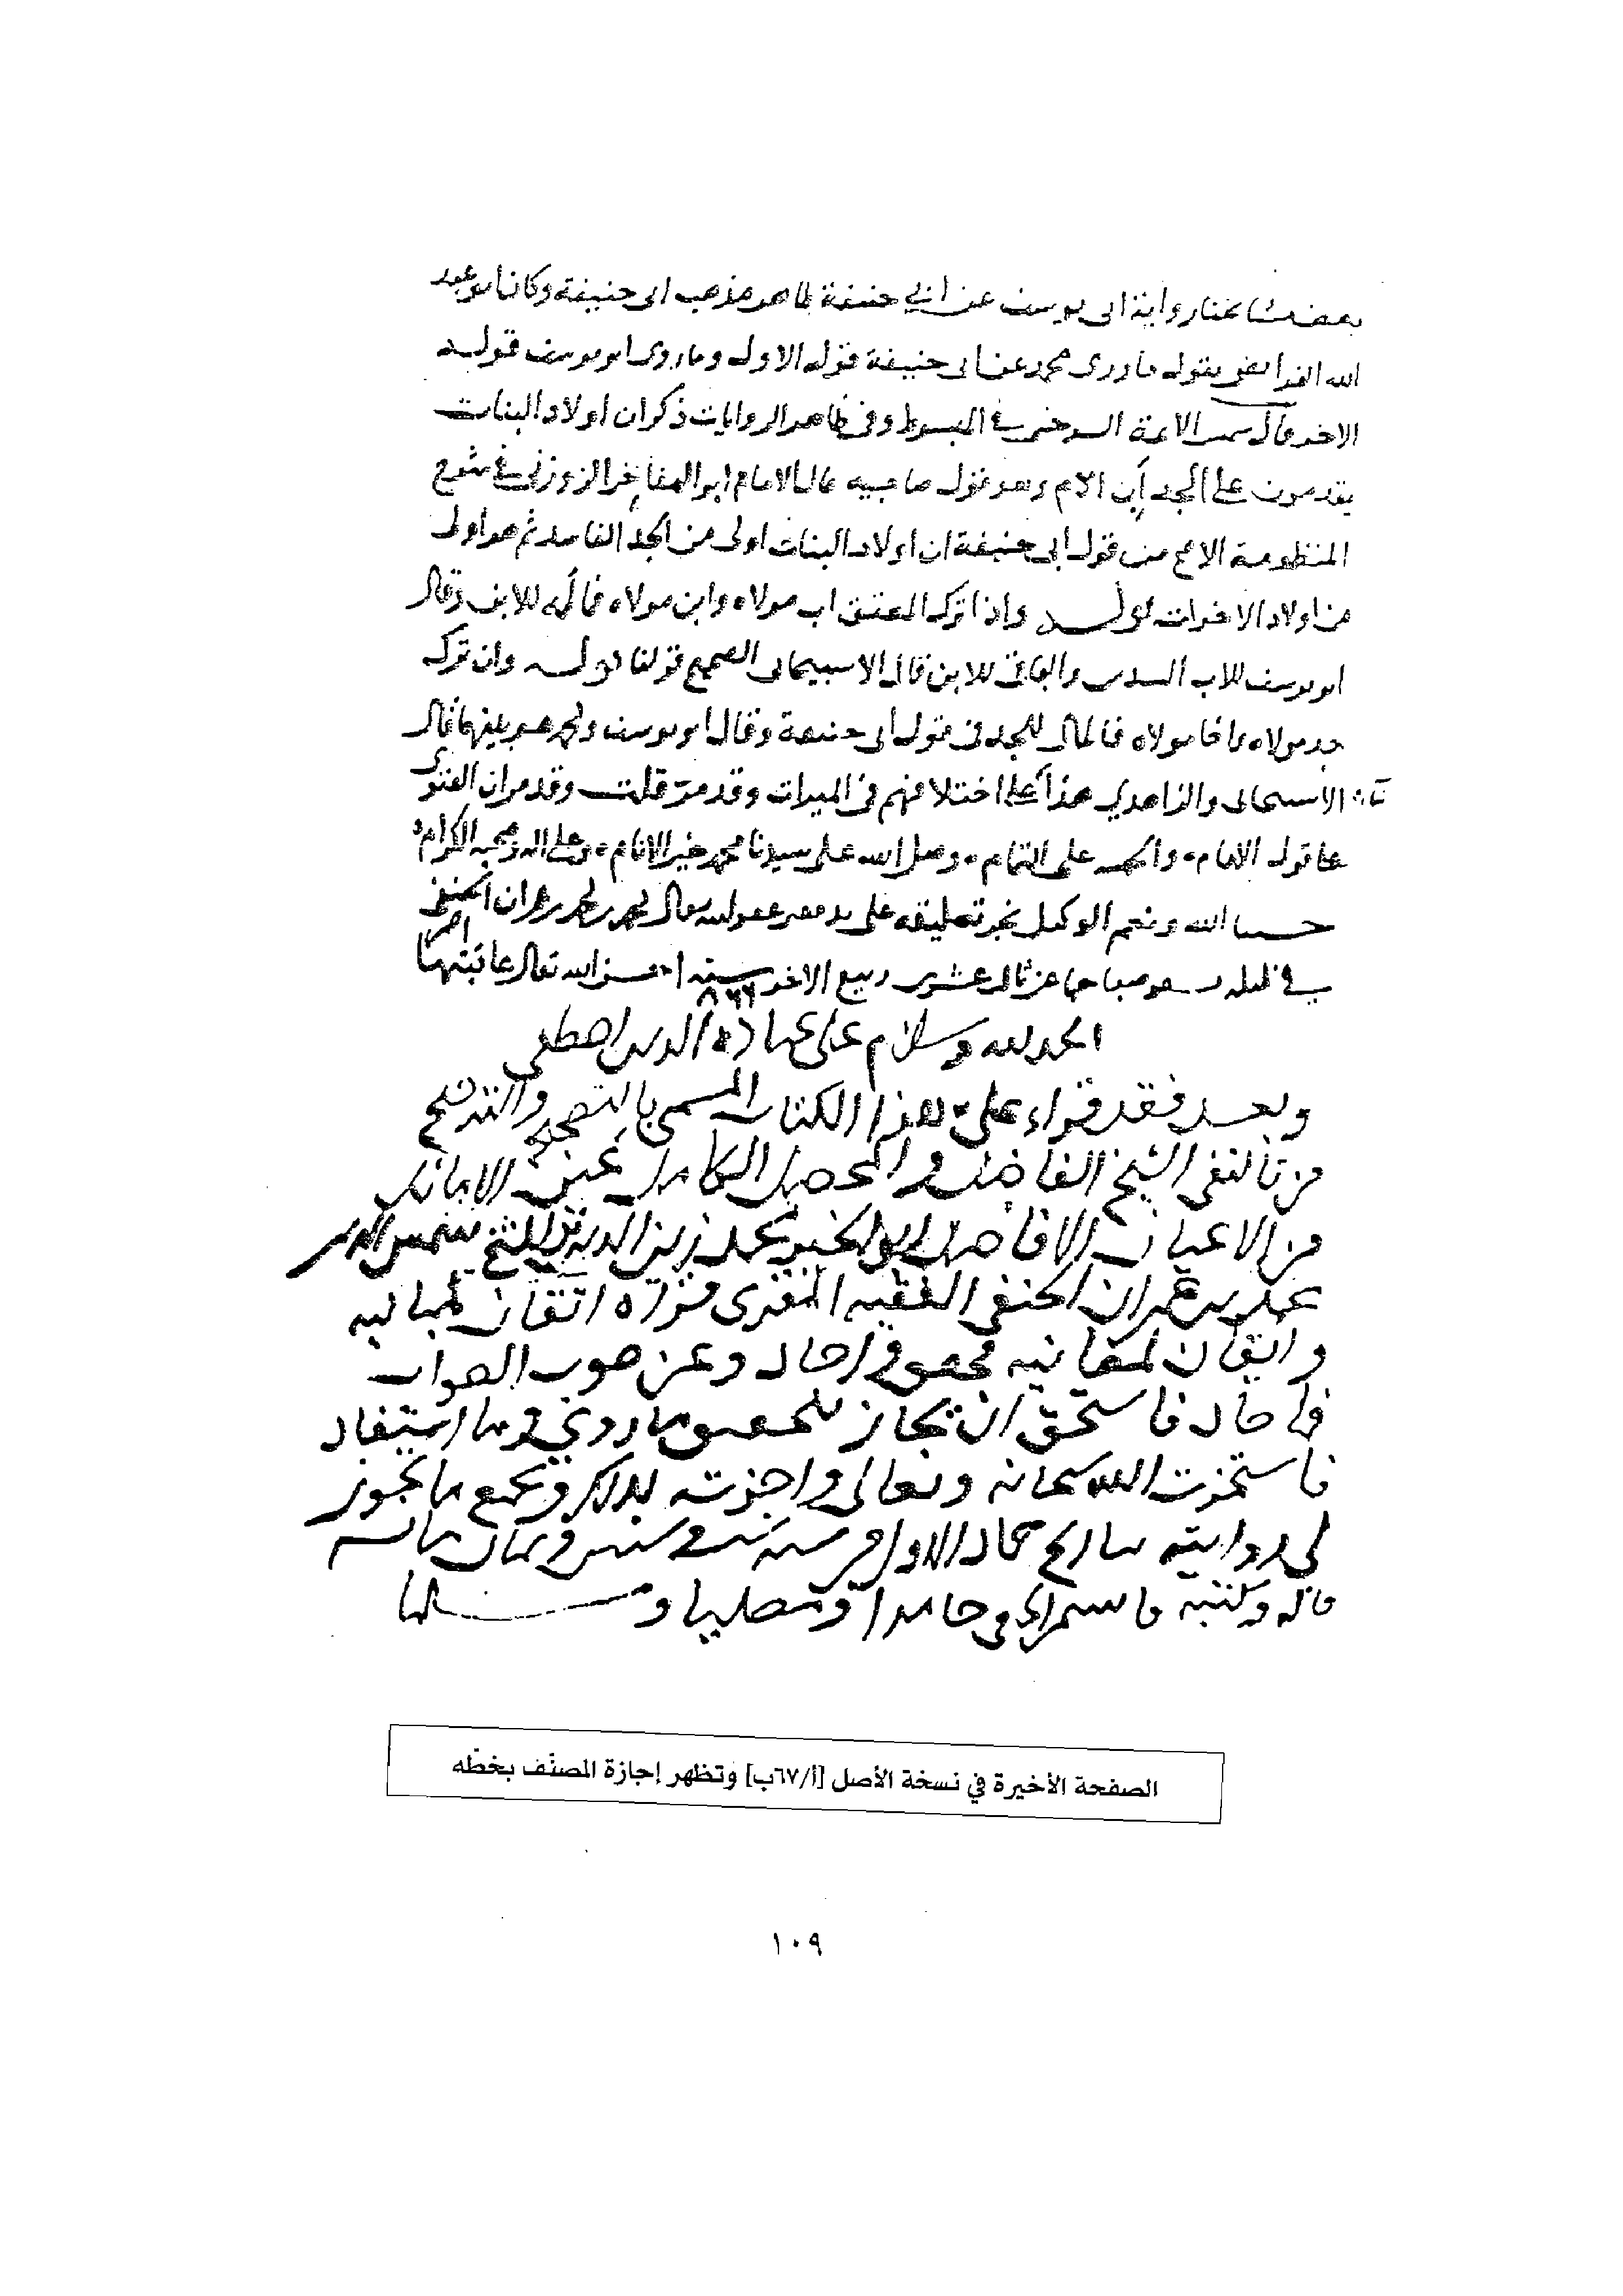 بعض مشايخنا رواية ابى يوسف عن ابي حنيفة ظاهر مذهب ابى حنيفة وكان ابو عبد
الله الفرايضى يقول ما روى محمد عن ابى حنيفة قوله الاول وما روى ابو يوسف قوله
الاخر قال شمس الائمة السرخسي في المبسوط وفى ظاهر الروايات ذكر ان اولاد البنات
يقدمون على الجد أب الام وهو قول صاحبيه قال الامام ابو المفاخر الزوزني في شرح
المنظومة الاصح من قول ابى حنيفة ان اولاد البنات اولى من الجد الفاسد ثم هو اولى
من اولاد الاخوات قوله واذا ترك المعتق اب مولاه وابن مولاه فماله للابن وقال
ابو يوسف للاب السدس والباقى للابن قال الاسبيجابى الصحيح قولهما قوله وان ترك
جد مولاه واخا مولاه فالمال للجد فى قول ابى حنيفة وقال ابو يوسف ومحمد هو بينهما قال
الاسبيجابى والزاهدي هذا على اختلافهم فى الميراث وقد مر قلت وقد مر ان الفتوى
على قول الامام، والحمد على التمام، وصلى الله على سيدنا محمد خير الانام، وعلى اله وصحبه الكرام
حسبنا الله ونعم الوكيل نجز تعليقه على يد عفو الله تعالى محمد بن محمد بن عمران الحنفى
في ليلة صباحها عن ثالث عشرين ربيع الاخر سنة ٨٦٦ احسن الله تعالى عاقبتها امين
الحمد لله وسلام على عباده الذين اصطفى
وبعد فقد قراء على هذا الكتاب المسمى بالتصحيح والترجيح
من تاليفى الشيخ الفاضل والمحصل الكامل عين الاماثل
من الاعيان الافاضل ابو الخير محمد زين الدين بن الشيخ شمس الدين
محمد بن عمران الحنفى الفقيه المقرى قراة اتقان لمبانيه
وايقان لمعانيه وعن صوب الصواب
ما حاد فاستحق ان يجاز وما استفاد
فاستخرت الله سبحانه وتعالى واجزته بذلك وبجميع ما يجوز
لى روايته بتاريخ جماد الاول من سنة ست وستين وثمان مائة
قاله وكتبه قاسم الحنفى حامدا ومصليا ومسلما
الصفحة الأخيرة في نسخة الأصل [أ/٦٧ب] وتظهر إجازة المصنّف بخطّه
١٠٩